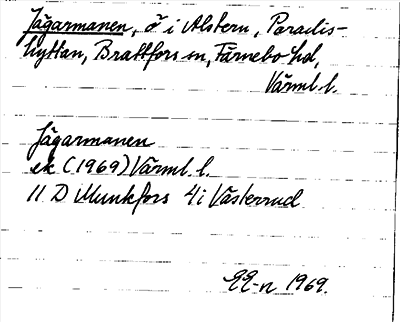 Jägarmanen, ö i Alstern, Paradis-
hyttan, Brattfors sn, Färnebo hd,
Värml. l.
Jägarmanen
ek (1969) Värml. l.
11 D Munkfors 4 i Västerrud
EE-n 1969.